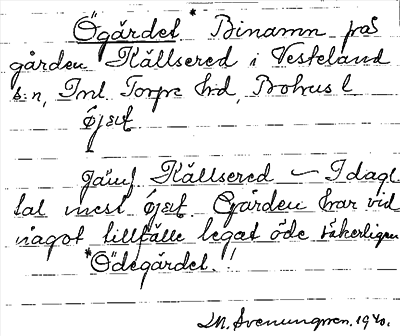 Ögärdet. * Binamn på
gården Källsered i Vesteland
s:n, Inl. Torpe h:d, Bohusl.
Jämf. Källsered — I dagl
tal mest
Gården har vid
något tillfälle legat öde säkerligen
*Ödegärdet. !
M. Svenungsson. 1940.